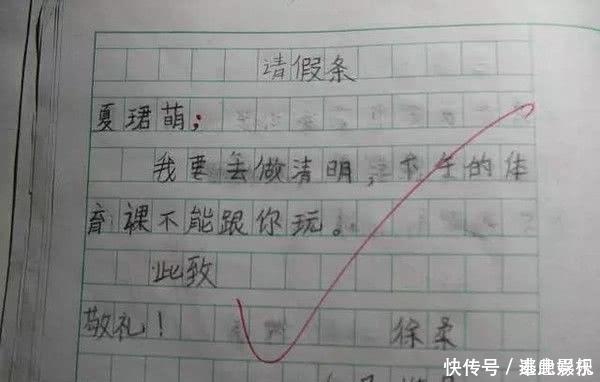 请假条
夏珺萌;
我要去做清明,下午的体
育裸不能跟你玩。
此致
敬礼! 徐柔
快传号 /